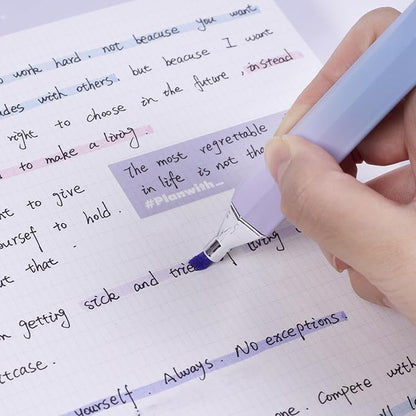 work hard, not beacuse you want
ades with others. but beacuse I want
right to choose in the future, instead
to make a living.
The most regrettable
in life is not the
#Planwith_
nt to give
urself to hold.
ut that.
n getting sick and tire living
itcase.
yourself. Always. No exceptions.
one. Compete with